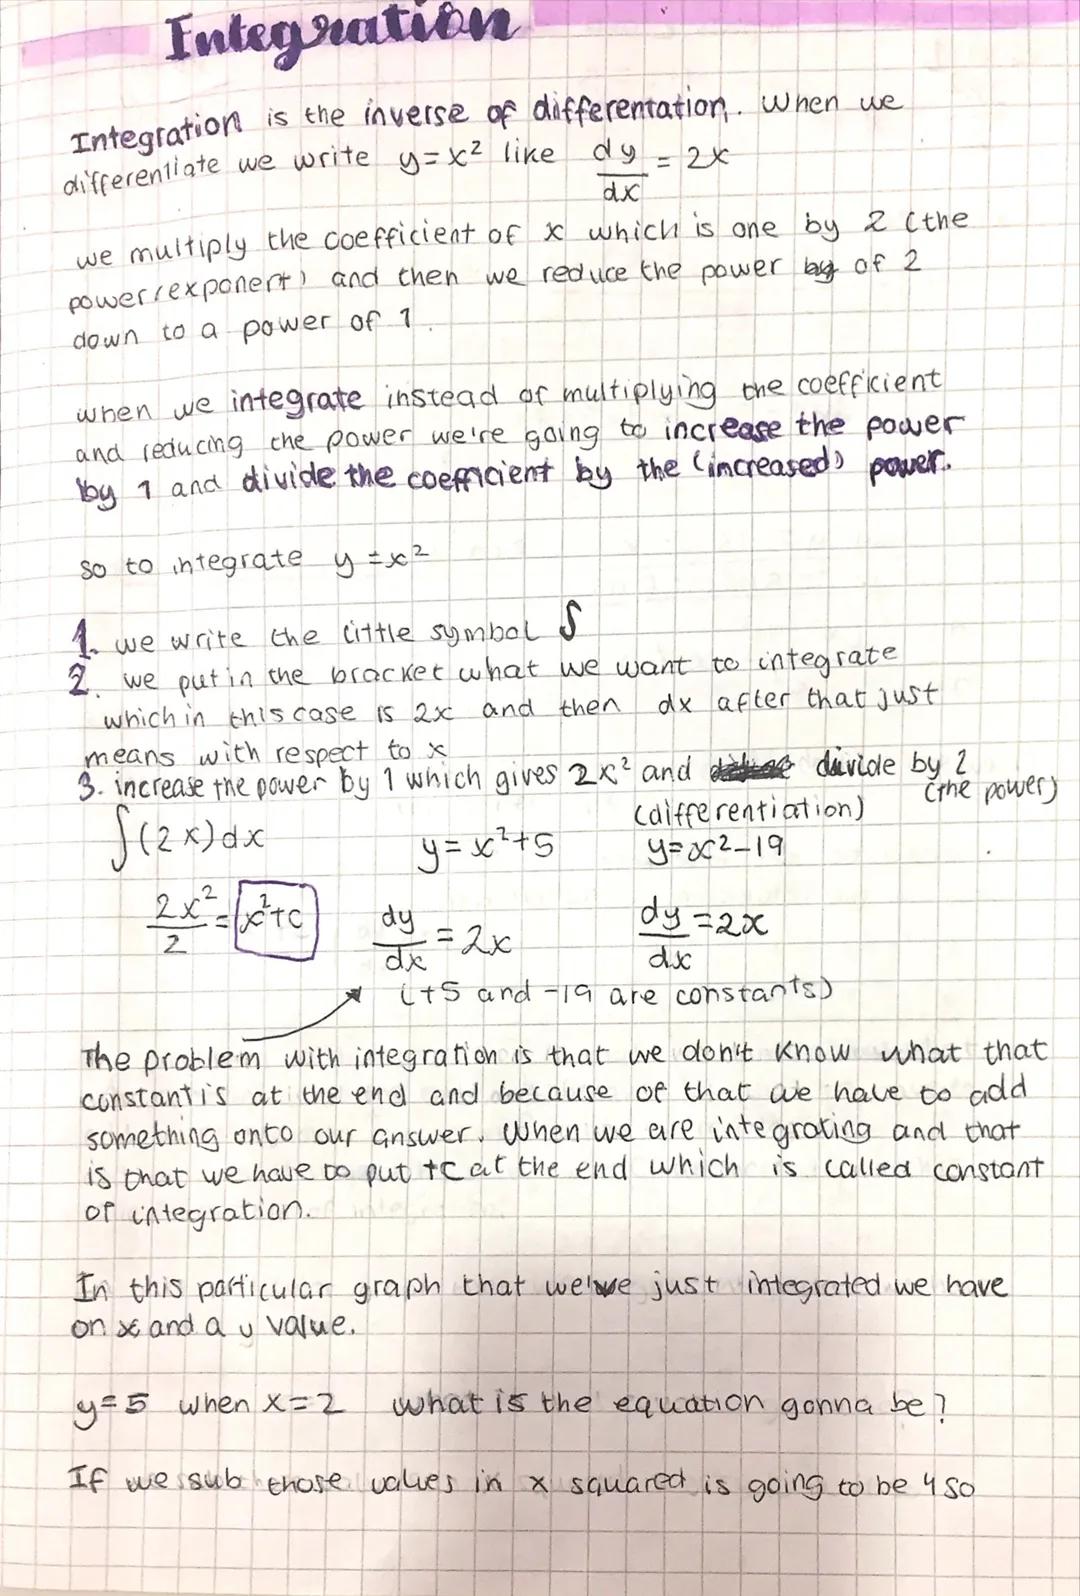 Integration
Integration is the inverse of differentation. When we
differentiate we write y=x² like dy/dx = 2x
we multiply the coefficient of x which is one by 2 (the
power/exponent) and then we reduce the power by of 2
down to a power of 1.
when we integrate instead of multiplying the coefficient
and reducing the power we're going to increase the power
by 1 and divide the coefficient by the (increased) power.
so to integrate y=x²
1. we write the little symbol ∫
2. we put in the bracket what we want to integrate
which in this case is 2x and then dx after that just
means with respect to x
3. increase the power by 1 which gives 2x² and divide by 2
(the power)
(differentiation)
∫(2x)dx y=x²+5 y=x²-19
2x²/2 = x²+c dy/dx = 2x dy/dx = 2x
(+5 and -19 are constants)
The problem with integration is that we don't know what that
constant is at the end and because of that we have to add
something onto our answer. When we are integrating and that
is that we have to put +c at the end which is called constant
of integration.
In this particular graph that we've just integrated we have
on x and a y value.
y=5 when x=2 what is the equation gonna be?
If we sub those values in x squared is going to be 4 so